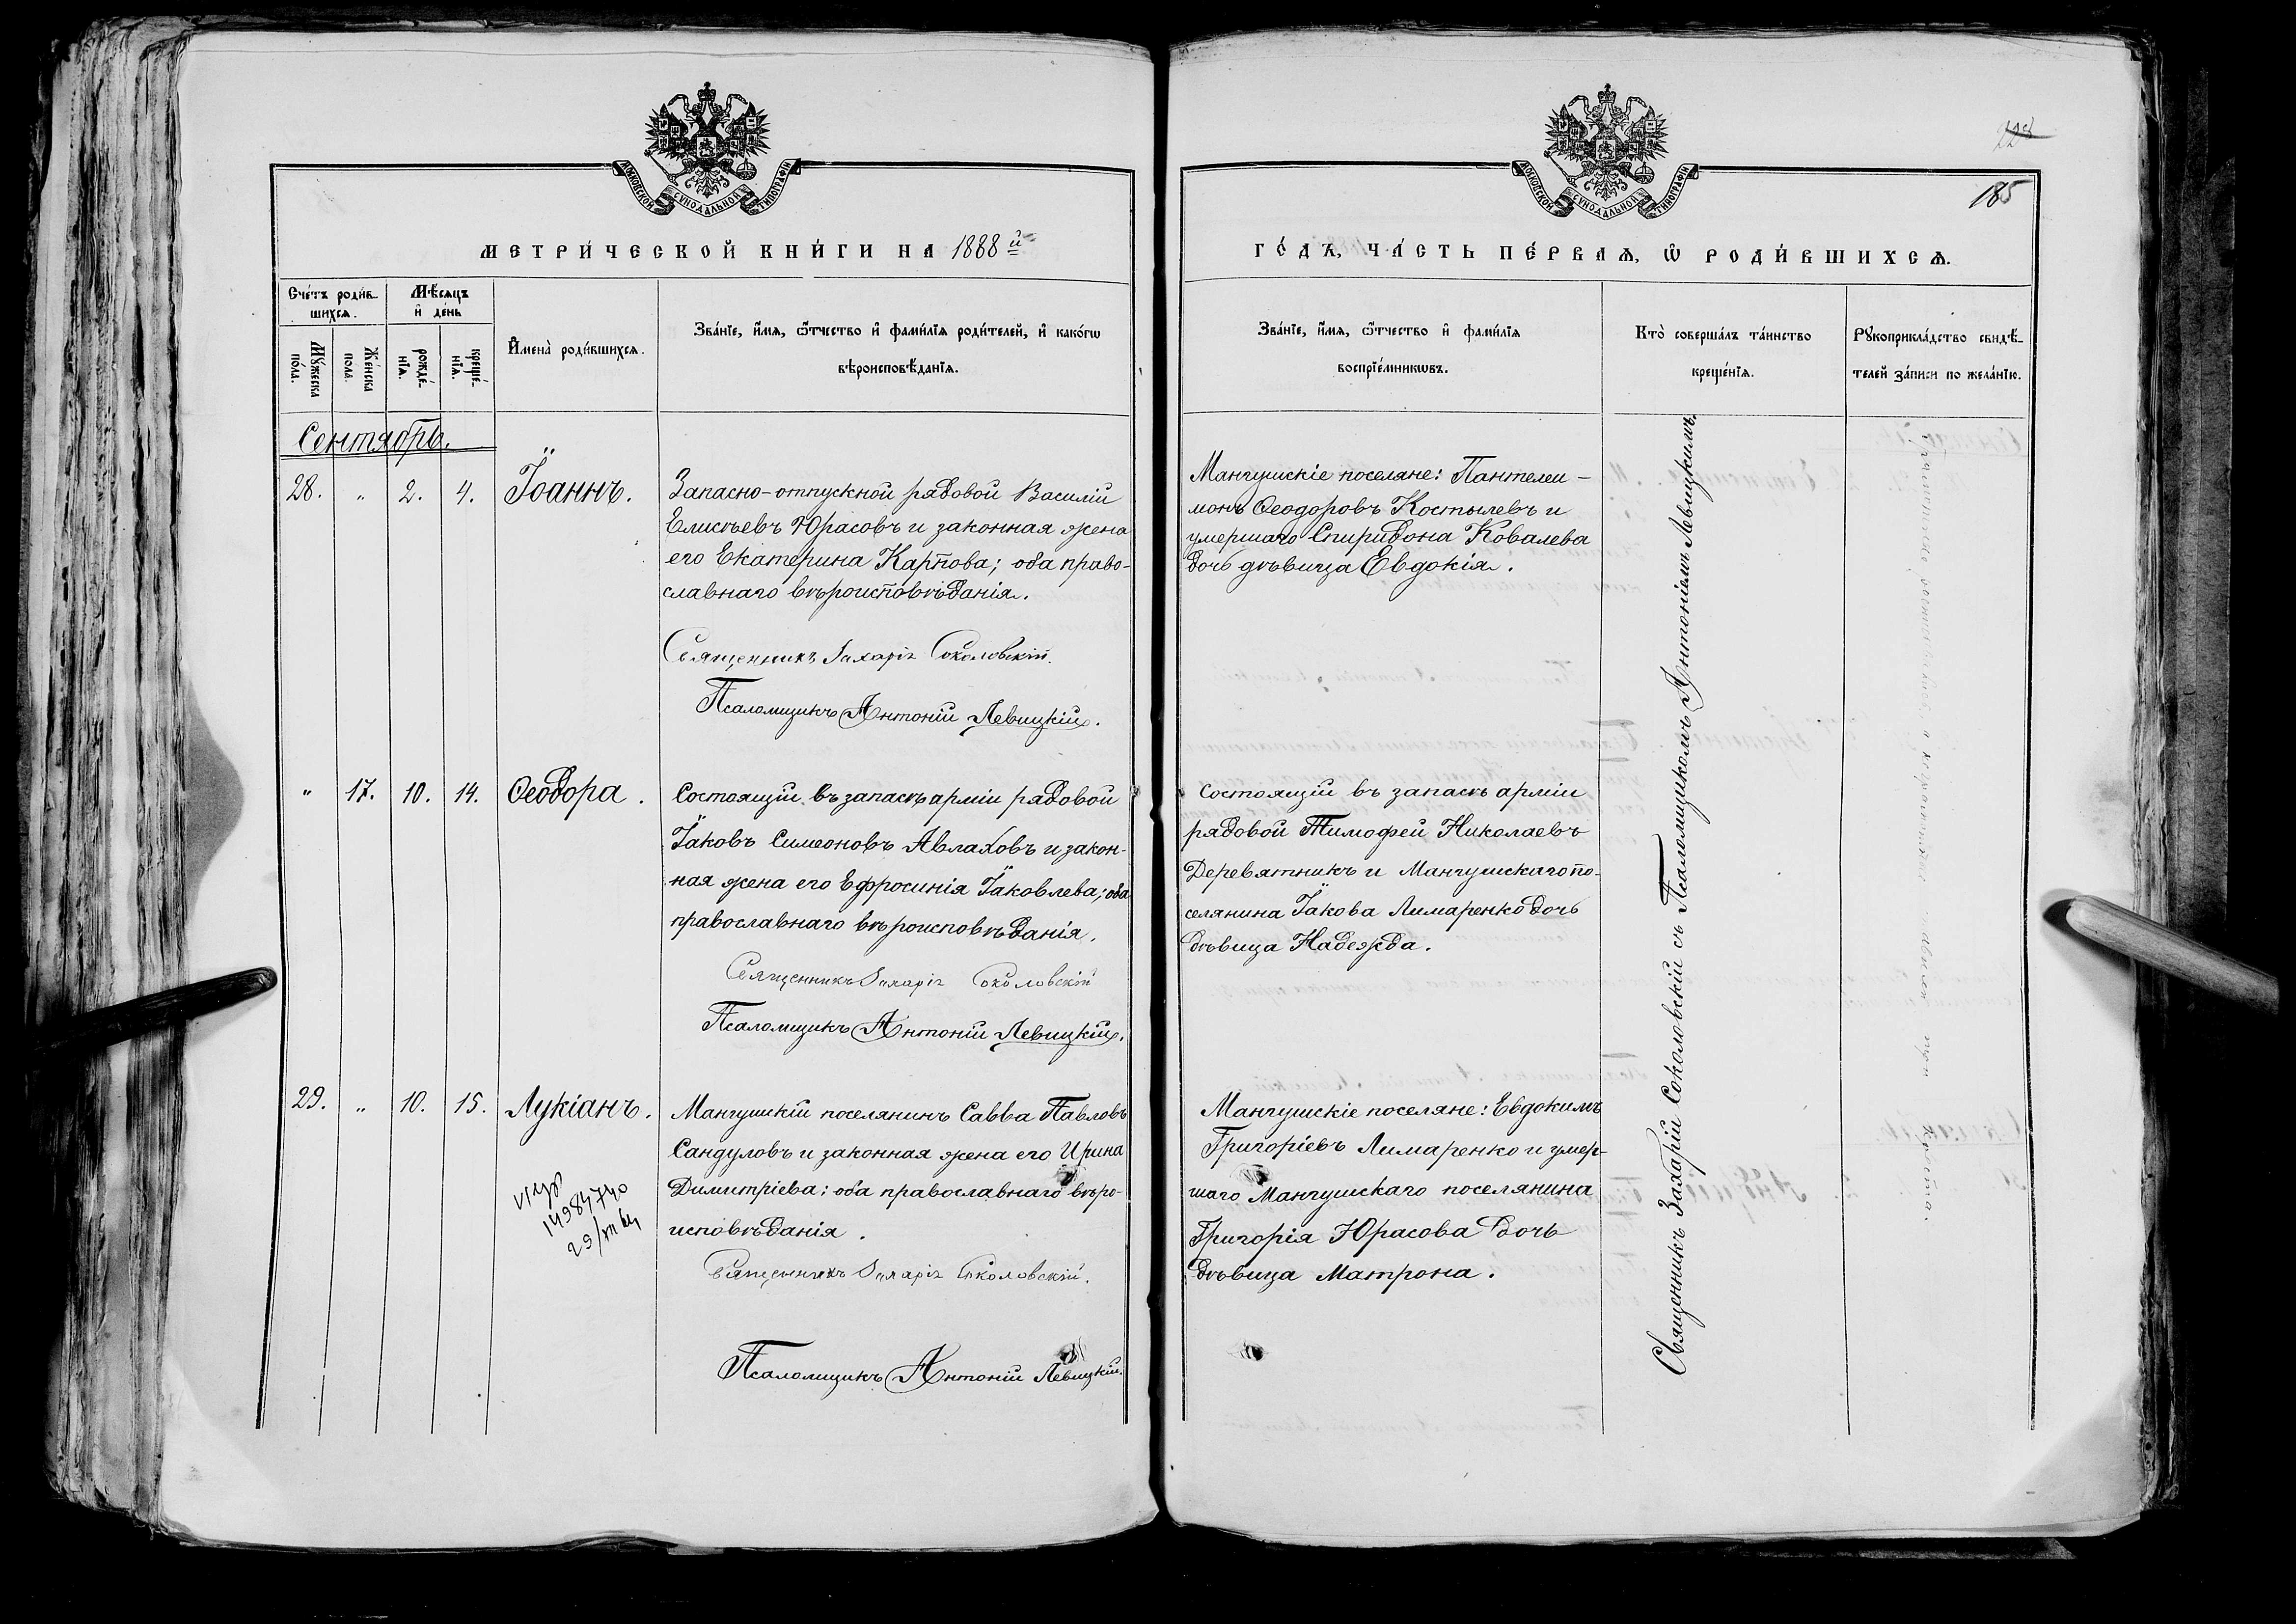 МОСКОВСКОЙ СѴНОДАЛЬНОЙ ТИПОГРАФІИ
МЕТРИ́ЧЕСКОЙ КНИ́ГИ НА 1888й
Сче́тъ роди́в-
шихсѧ.
Мѣ́сѧцъ
и҆ де́нь
Мꙋ́жеска
по́ла.
Же́нска
пола̀.
рожде́-
нїѧ.
креще́-
нїѧ.
И҆мена̀ роди́вшихсѧ.
Зва́нїе, и҆́мѧ, ѻ҆́тчество и҆ фами́лїѧ роди́телей, и҆ како́гѡ
вѣроисповѣ́данїѧ.
Сентябрь.
28. „ 2. 4. Іоаннъ.
Запасно-отпускной рядовой Василій
Елисѣевъ Юрасовъ и законная жена
его Екатерина Карпова; оба право-
славнаго вѣроисповѣданія.
Священникъ Захарія Соколовскій.
Псаломщикъ Антоній Левицкій.
„ 17. 10. 14. Ѳеодора.
Состоящій въ запасѣ арміи рядовой
Іаковъ Симеоновъ Авлаховъ и закон-
ная жена его Ефросинія Іаковлева; оба
православнаго вѣроисповѣданія.
Священникъ Захарія Соколовскій
Псаломщикъ Антоній Левицкій.
29. „ 10. 15. Лукіанъ.
14984740
Мангушскій поселянинъ Савва Павловъ
Сандуловъ и законная жена его Ирина
Димитріева; оба православнаго вѣро-
исповѣданія.
Священникъ Захарія Соколовскій.
Псаломщикъ Антоній Левицкій.
МОСКОВСКОЙ СѴНОДАЛЬНОЙ ТИПОГРАФІИ
185
ГО́ДЪ, ЧА́СТЬ ПЕ́РВАѦ, Ѡ҆ РОДИ́ВШИХСѦ.
Зва́нїе, и҆́мѧ, ѻ҆́тчество и҆ фами́лїѧ
воспрїе́мникѡвъ.
Кто̀ соверша́лъ та́инство
креще́нїѧ.
Рꙋкоприкла́дство свидѣ́-
телей за́писи по жела́нїю.
Мангушскіе поселяне: Пантелеи-
монъ Ѳеодоровъ Костылевъ и
умершаго Спиридона Ковалева
дочь дѣвица Евдокія.
Состоящій въ запасѣ арміи
рядовой Тимофей Николаевъ
Деревятникъ и Мангушскаго по-
селянина Іакова Лимаренко дочь
дѣвица Надежда.
Мангушскіе поселяне: Евдокимъ
Григоріевъ Лимаренко и умер-
шаго Мангушскаго поселянина
Григорія Юрасова дочь
дѣвица Матрона.
Священникъ Захарій Соколовскій съ Псаломщикомъ Антоніемъ Левицкимъ.